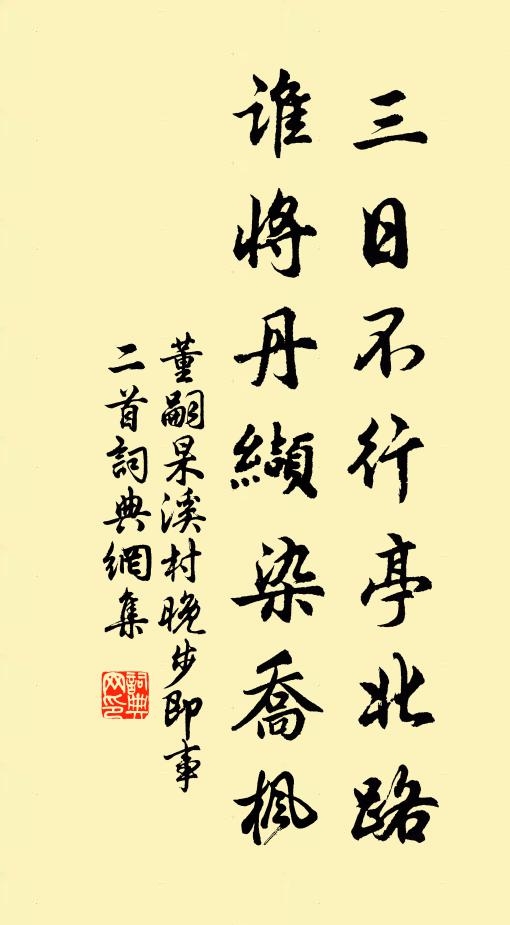 三日不行亭北路
谁将丹纈染喬楓
董嗣杲溪村晚步即事
二首詞典網集
詞典
网印